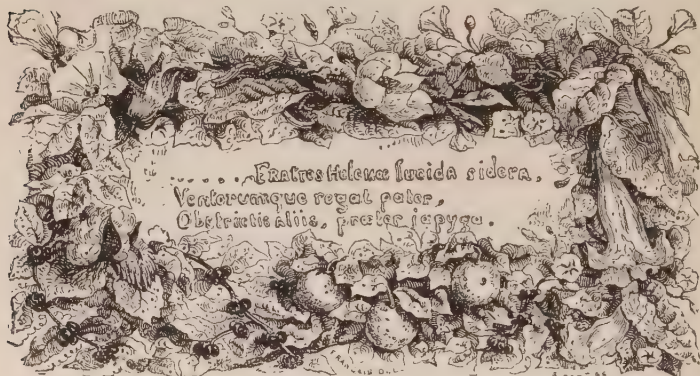 ...... FRatres Helenæ lucida sidera,
Ventorumque regat pater,
Obstrictis aliis, præter japyga.